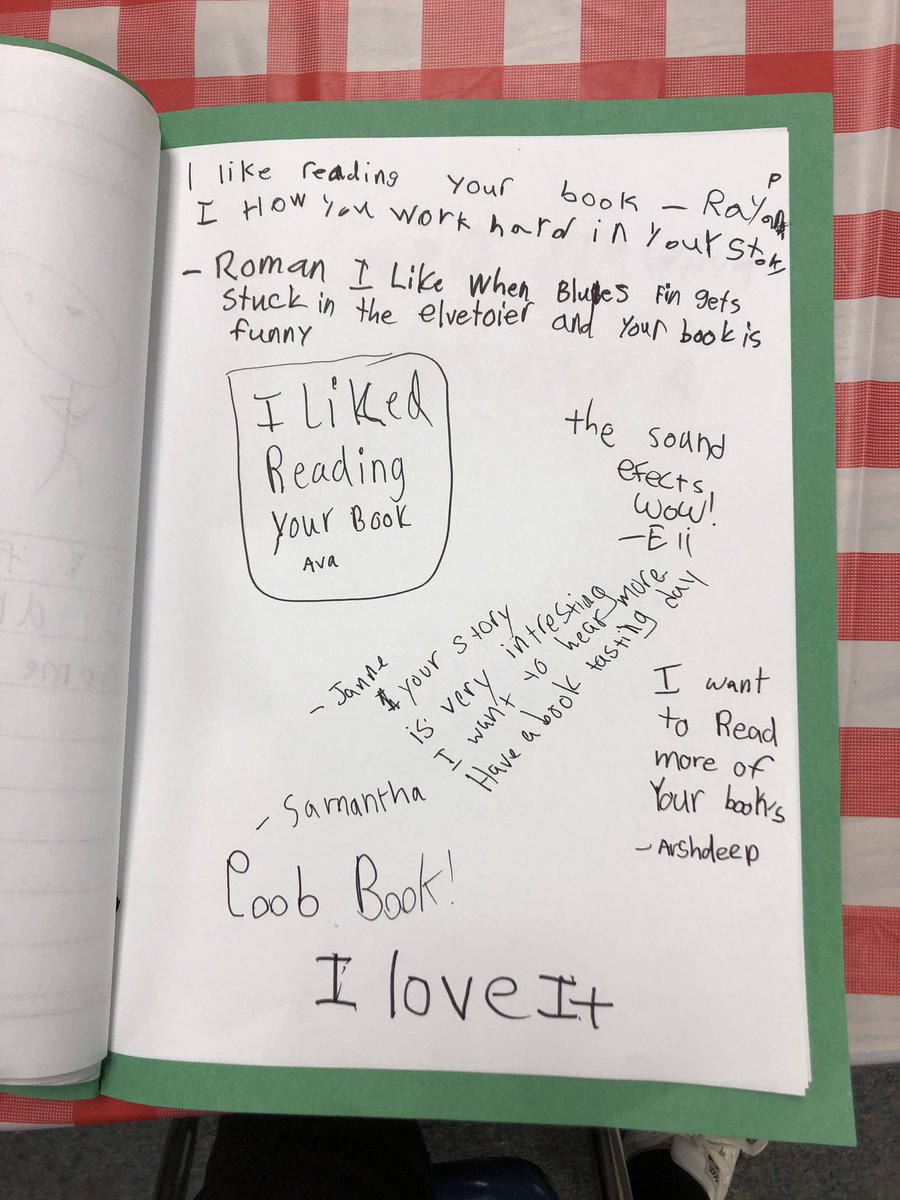 I like reading your book – Rayan P
I How you work hard in your story
– Roman I Like When Blues Fin gets
stuck in the elvetoier and your book is
funny
I Liked
Reading
your Book
Ava
the sound
efects
wow!
– Eli
– Janne
your story
is very intresting
I want to hear more
Have a book tasting day
I want
to Read
more of
Your books
– Arshdeep
– Samantha
Coob Book!
I love It